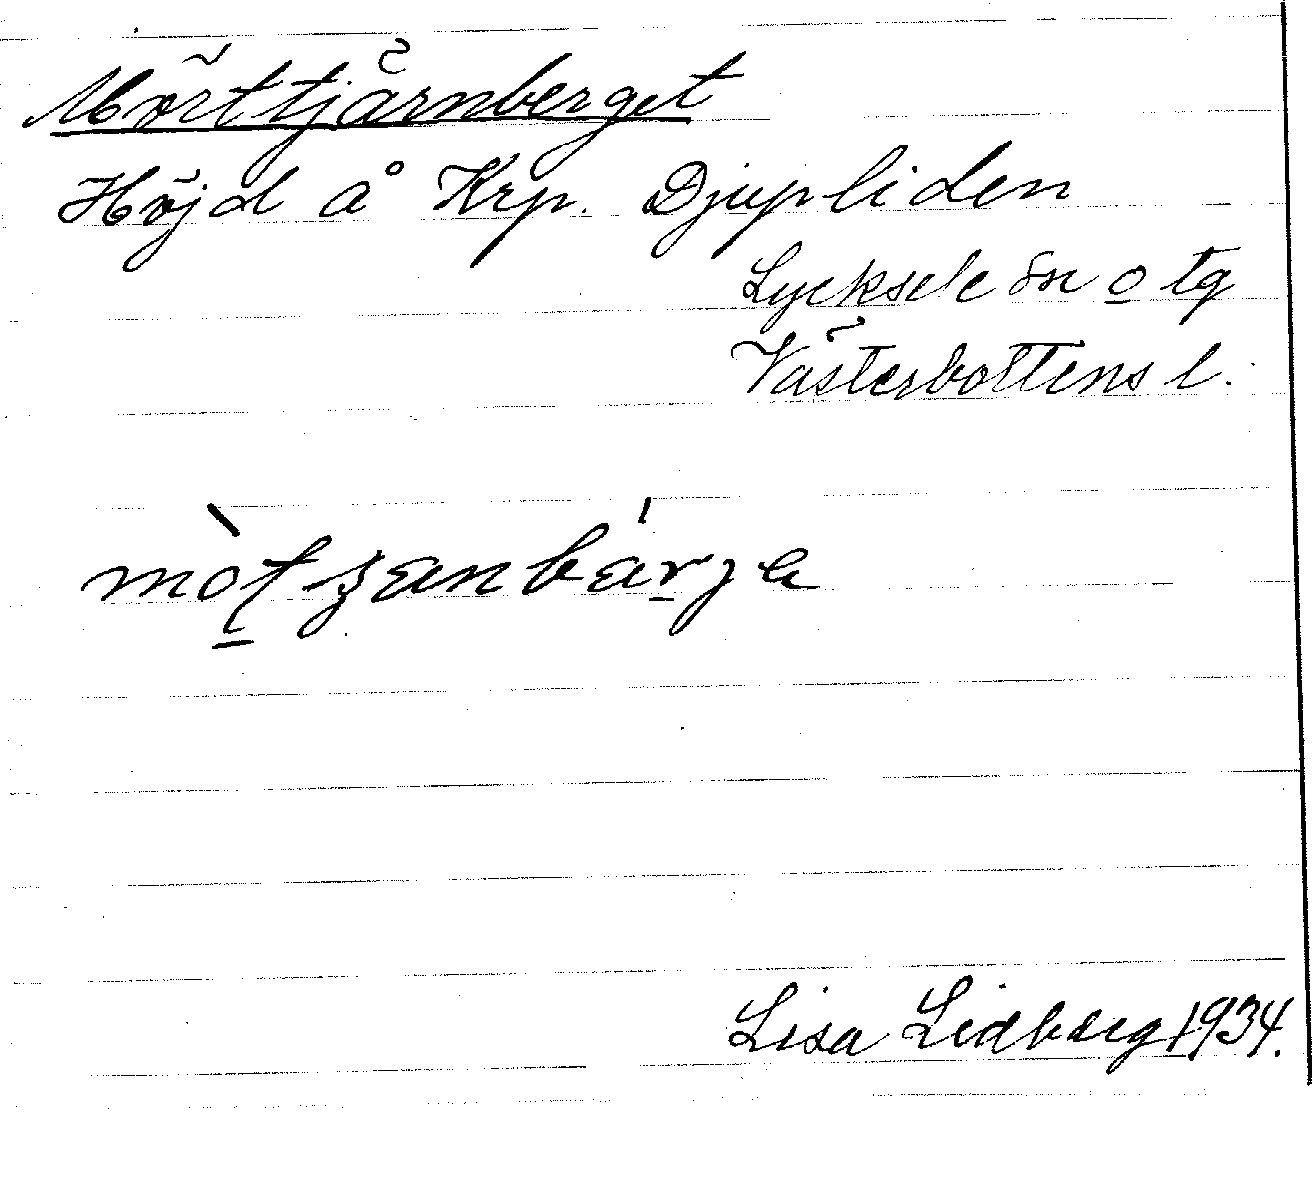 Mörttjärnberget
Höjd å Krp. Djupliden
Lycksele sn o tg
Västerbottens l.
Lisa Lidberg 1934.